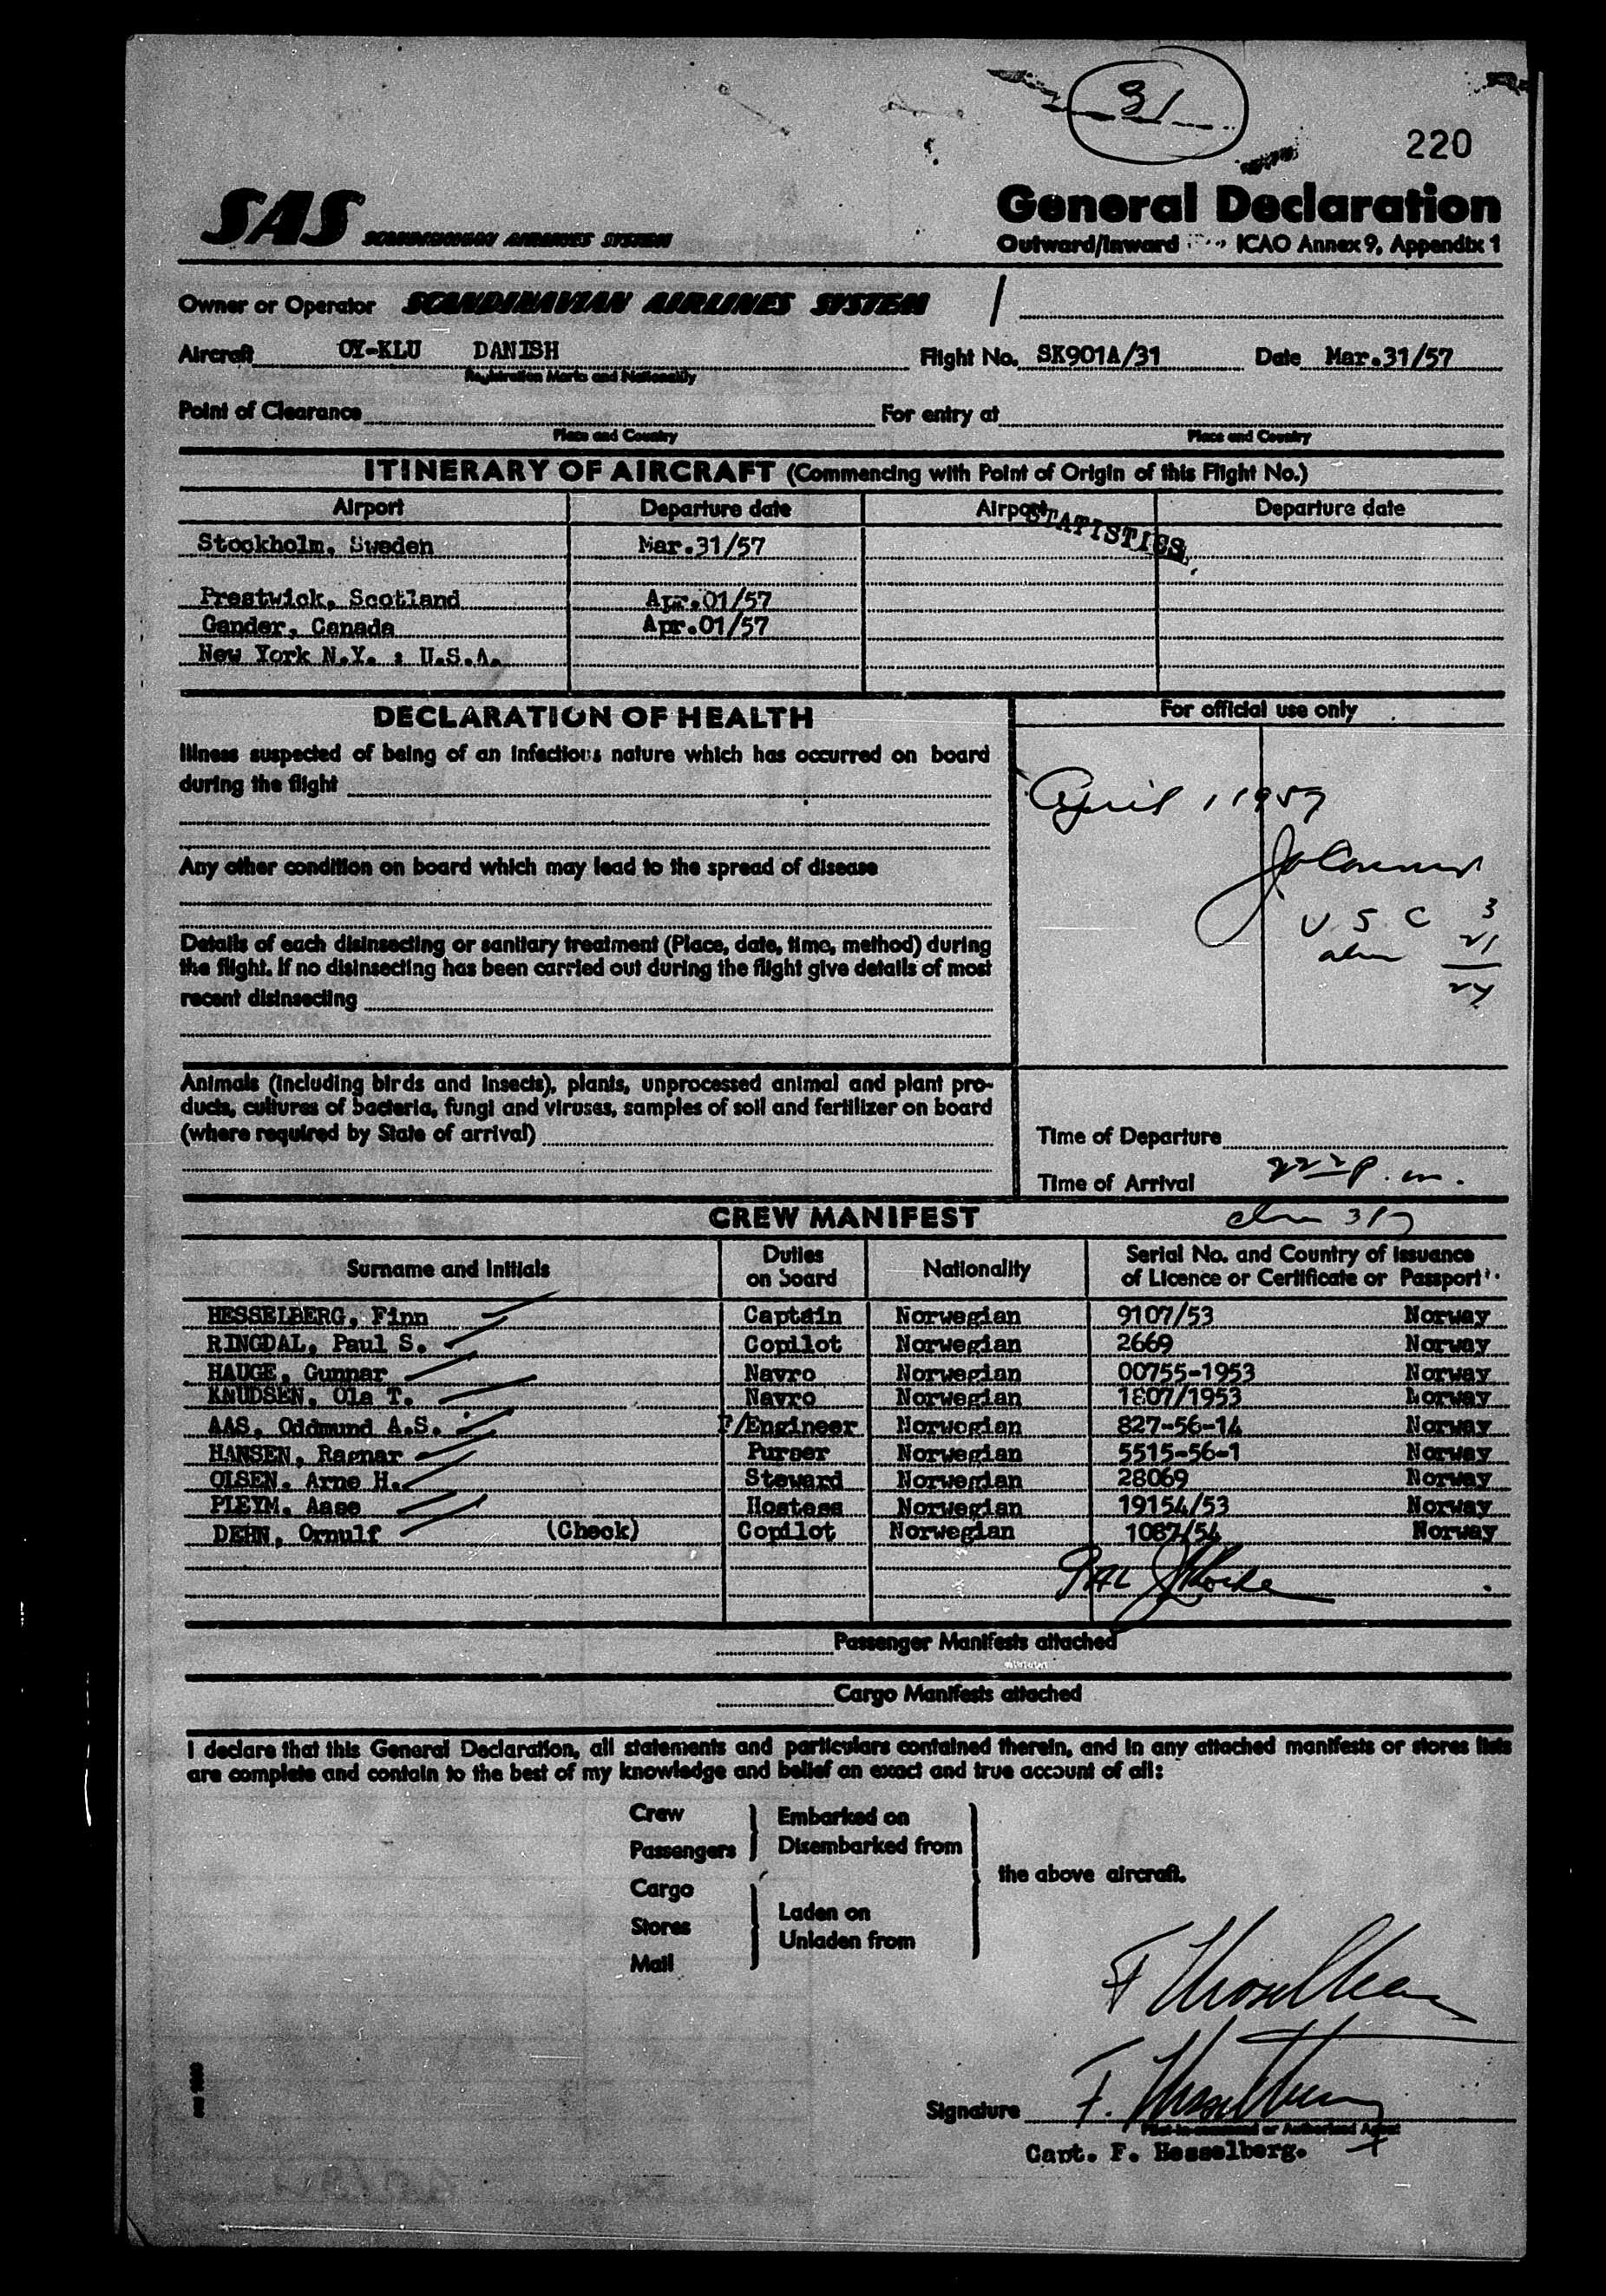 31
220
SAS SCANDINAVIAN AIRLINES SYSTEM
General Declaration
Outward/Inward ICAO Annex 9, Appendix 1
Owner or Operator SCANDINAVIAN AIRLINES SYSTEM
Aircraft OY-KLU DANISH Flight No. SK901A/31 Date Mar.31/57
Registration Marks and Nationality
Point of Clearance For entry at
Place and Country Place and Country
ITINERARY OF AIRCRAFT (Commencing with Point of Origin of this Flight No.)
Airport Departure date Airport Departure date
STATISTICS
Stockholm, Sweden Mar.31/57
Prestwick, Scotland Apr.01/57
Gander, Canada Apr.01/57
New York N.Y. : U.S.A.
DECLARATION OF HEALTH
Illness suspected of being of an infectious nature which has occurred on board
during the flight
Any other condition on board which may lead to the spread of disease
Details of each disinsecting or sanitary treatment (Place, date, time, method) during
the flight. If no disinsecting has been carried out during the flight give details of most
recent disinsecting
Animals (including birds and insects), plants, unprocessed animal and plant pro-
ducts, cultures of bacteria, fungi and viruses, samples of soil and fertilizer on board
(where required by State of arrival)
For official use only
April 1 1957
U.S.C 3
21
24
Time of Departure
Time of Arrival p.m.
CREW MANIFEST
Surname and Initials Duties on board Nationality Serial No. and Country of Issuance of Licence or Certificate or Passport
HESSELBERG, Finn Captain Norwegian 9107/53 Norway
RINGDAL, Paul S. Copilot Norwegian 2669 Norway
HAUGE, Gunnar Navro Norwegian 00755-1953 Norway
KNUDSEN, Ola T. Navro Norwegian 1807/1953 Norway
AAS, Oddmund A.S. F/Engineer Norwegian 827-56-14 Norway
HANSEN, Ragnar Purser Norwegian 5515-56-1 Norway
OLSEN, Arne H. Steward Norwegian 28069 Norway
PLEYM, Aase Hostess Norwegian 19154/53 Norway
DEHN, Ornulf (Check) Copilot Norwegian 1087/54 Norway
Passenger Manifests attached
Cargo Manifests attached
I declare that this General Declaration, all statements and particulars contained therein, and in any attached manifests or stores lists
are complete and contain to the best of my knowledge and belief an exact and true account of all:
Crew
Passengers
Embarked on
Disembarked from
Cargo
Stores
Mail
Laden on
Unladen from
the above aircraft.
F Hesselberg
Signature F. Hesselberg
Pilot-in-command or Authorized Agent
Capt. F. Hesselberg.